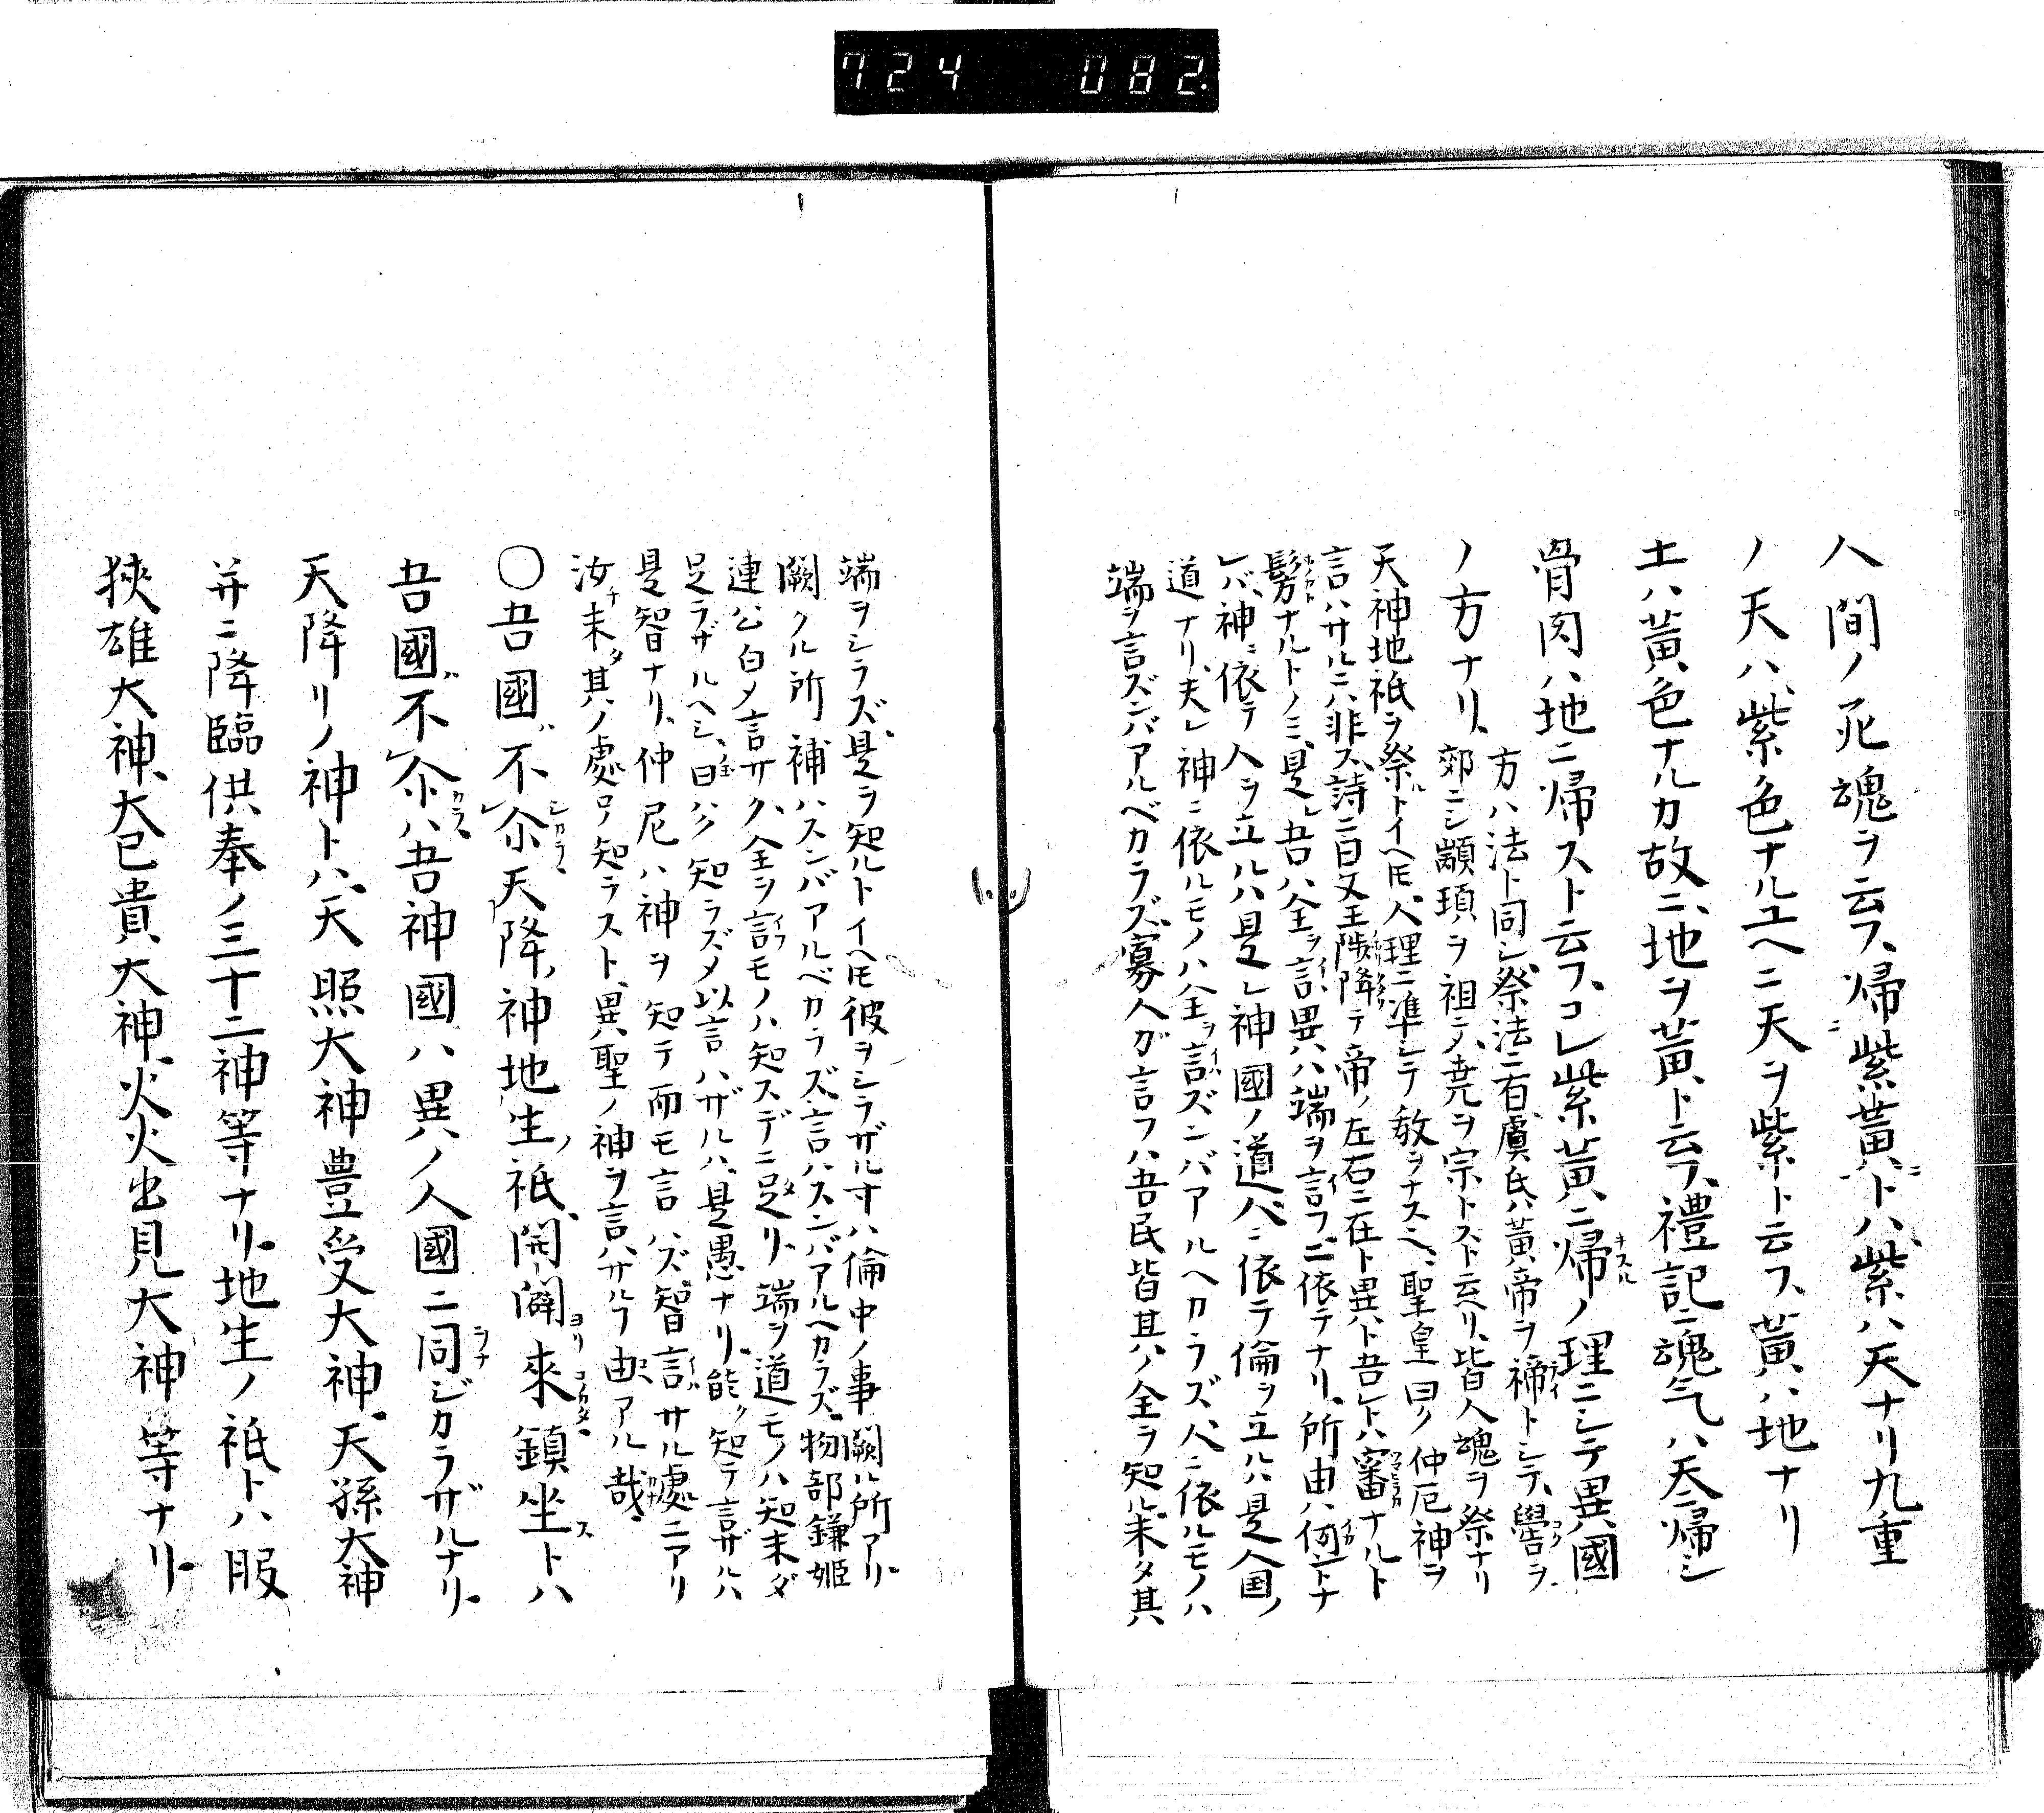 724 082.
人間ノ死魂ヲ云フ、帰紫黄トハ、紫ハ天ナリ九重
ノ天ハ、紫色ナルユヘニ天ヲ紫ト云フ、黄ハ地ナリ
土ハ黄色ナルカ故ニ、地ヲ黄ト云フ、禮記ニ魂气ハ天ニ帰シ
骨肉ハ地ニ帰スト云フ、コレ紫黄ニ帰ノ理ニシテ異國
ノ方ナリ、
方ハ法ト同シ、祭法ニ有虞氏ハ黄帝ヲ禘トシテ、嚳ヲ
郊ニシ顓頊ヲ祖ニノ、尭ヲ宗トスト云ヘリ、皆人魂ヲ祭ナリ
天神地祇ヲ祭ルトイヘ𪜈、人理ニ準シテ敬ヲナスヘ、聖皇曰ク仲尼神ヲ
言ハサルニハ非ス、詩ニ曰文王陟降テ帝ノ左右ニ在ト異ハト吾レトハ審ナルト
髣ナルトノミ、是レ吾ハ全ヲ言、異ハ端ヲ言フニ依テナリ、所由ハ何トナ
レバ、神ニ依テ人ヲ立ルハ是レ神國ノ道、人ニ依テ倫ヲ立ルハ是人国ノ
道ナリ、夫レ神ニ依ルモノハ全ヲ言ズンバアルヘカラズ、人ニ依ルモノハ
端ヲ言ズンバアルベカラズ、寡人ガ言フハ吾民皆其ノ全ヲ知ル、未タ其
端ヲシラズ、是ヲ知ルトイヘ𪜈彼ヲシラザル寸ハ倫中ノ事闕ル所アリ、
闕クル所補ハスンバアルベカラズ、言ハスンバアルヘカラズ、物部鎌姫
連公白メ言サク、全ヲ言モノハ知スデニ足リ、端ヲ道モノハ知未ダ
足ラザルヘシ、曰ハク知ラズメ以言ハザルハ、是愚ナリ、能ク知テ言ザルハ
是智ナリ、仲尼ハ神ヲ知テ而モ言ハズ、智言サル處ニアリ
汝未タ其ノ處ロヲ知ラスト、異聖ノ神ヲ言ハサルフ由アル哉、
〇吾國不尒天降神地生祇、開闢來鎮坐トハ
吾國不尒ハ吾神國ハ異ノ人國ニ同ジカラザルナリ、
天降リノ神トハ、天照大神豊受大神、天孫大神
并ニ降臨供奉ノ三十二神等ナリ、地生ノ祇トハ服
狹雄大神、大已貴大神、火火出見大神等ナリ、